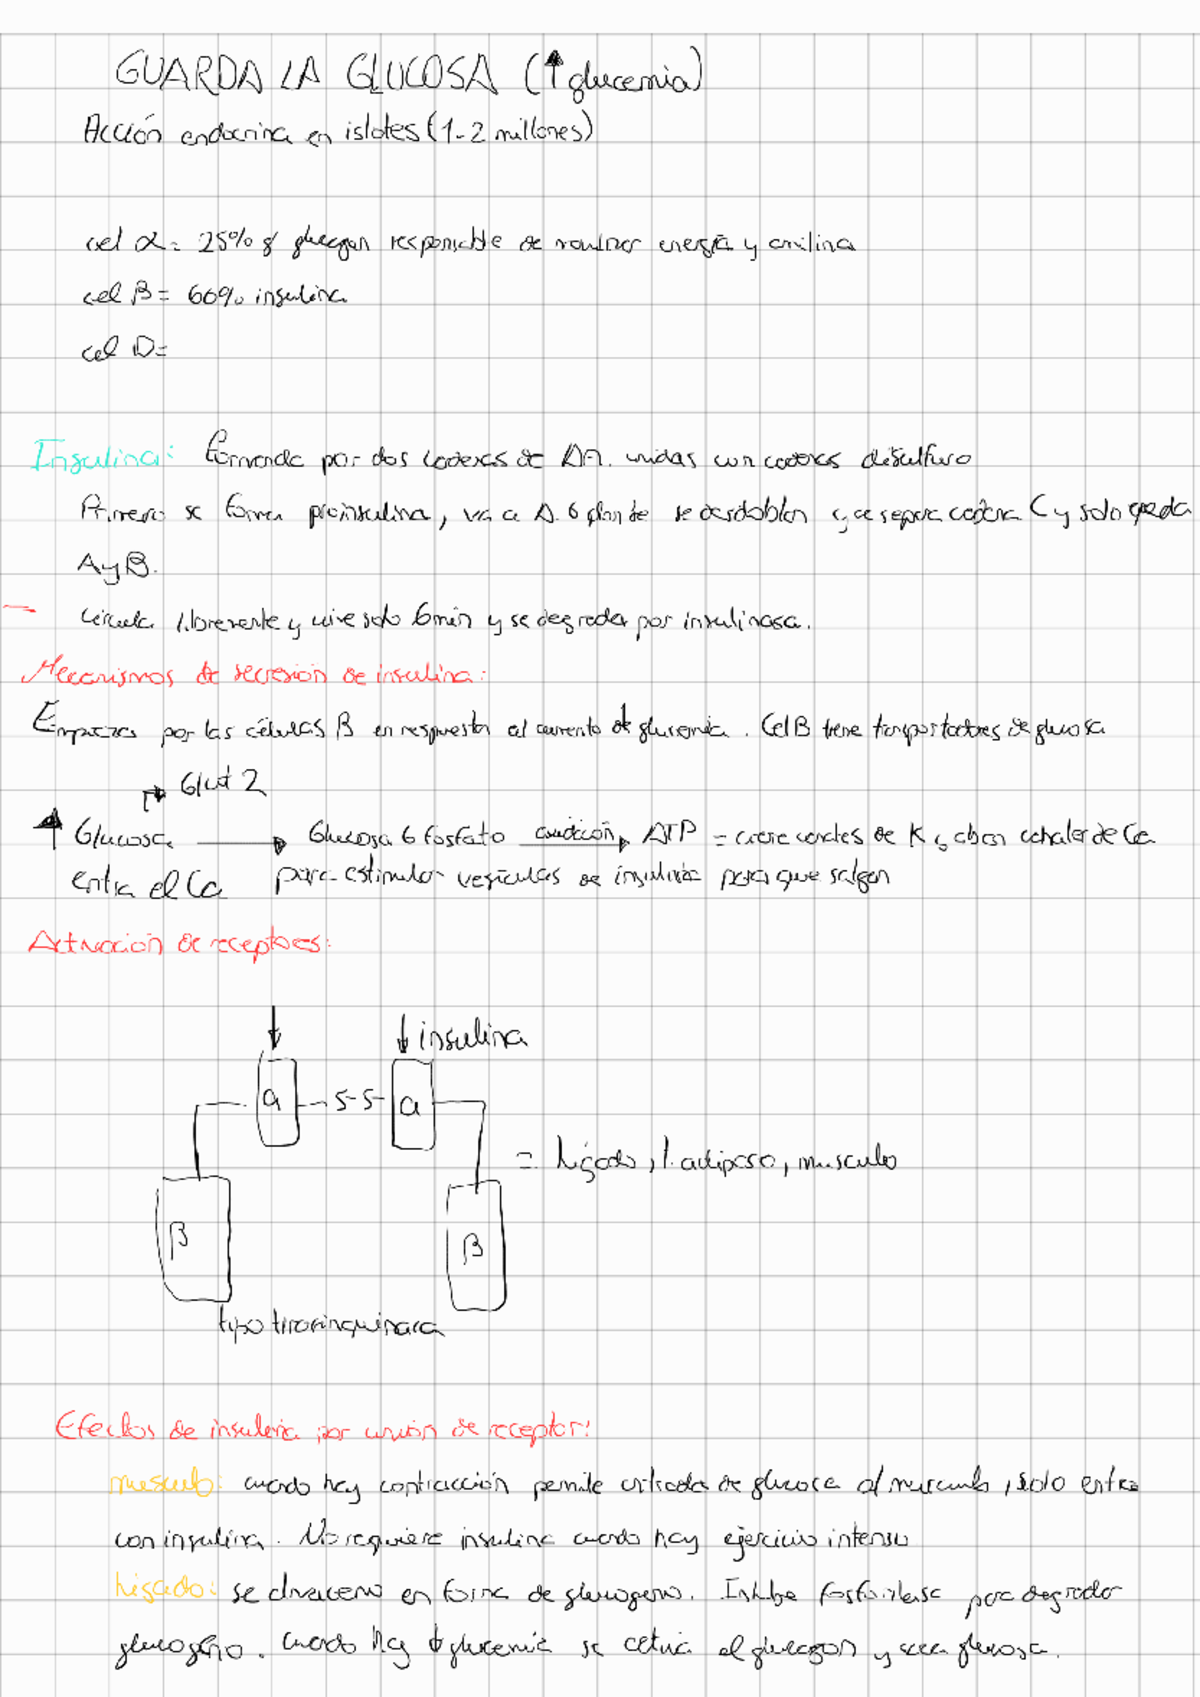 GUARDA LA GLUCOSA (↑glucemia)
Acción endocrina en islotes (1-2 millones)
cel α = 25% glucagon responsable de energía y amilina
cel β = 60% insulina
cel D=
Insulina: Formada por dos cadenas de AA. unidas con cadenas disulfuro
Primero se forma proinsulina, va a A. G se desdoblan y se separa cadena C y solo queda
A y B.
circula libremente y vive solo 6 min y se degrada por insulinasa.
Mecanismos de secresión de insulina:
Empieza por las células β en respuesta al aumento de glucemia. Cel B tiene transportadores de glucosa
Glut 2
↑ Glucosa → Glucosa 6 fosfato → ATP = cierre canales de K, abren canales de Ca
entra el Ca para estimular vesículas de insulina para que salgan
Activación de receptores:
↓ ↓ insulina
a -S-S- a
= hígado, t. adiposo, musculo
β β
tipo tirosinquinasa
Efectos de insulina por unión de receptor:
musculo: cuando hay contracción permite entrada de glucosa al musculo, solo entra
con insulina. No requiere insulina cuando hay ejercicio intenso
higado: se almacena en forma de glucogeno. Inhibe fosforilasa para degradar
glucogeno. Cuando hay ↓glucemia se activa el glucagon y glucosa.